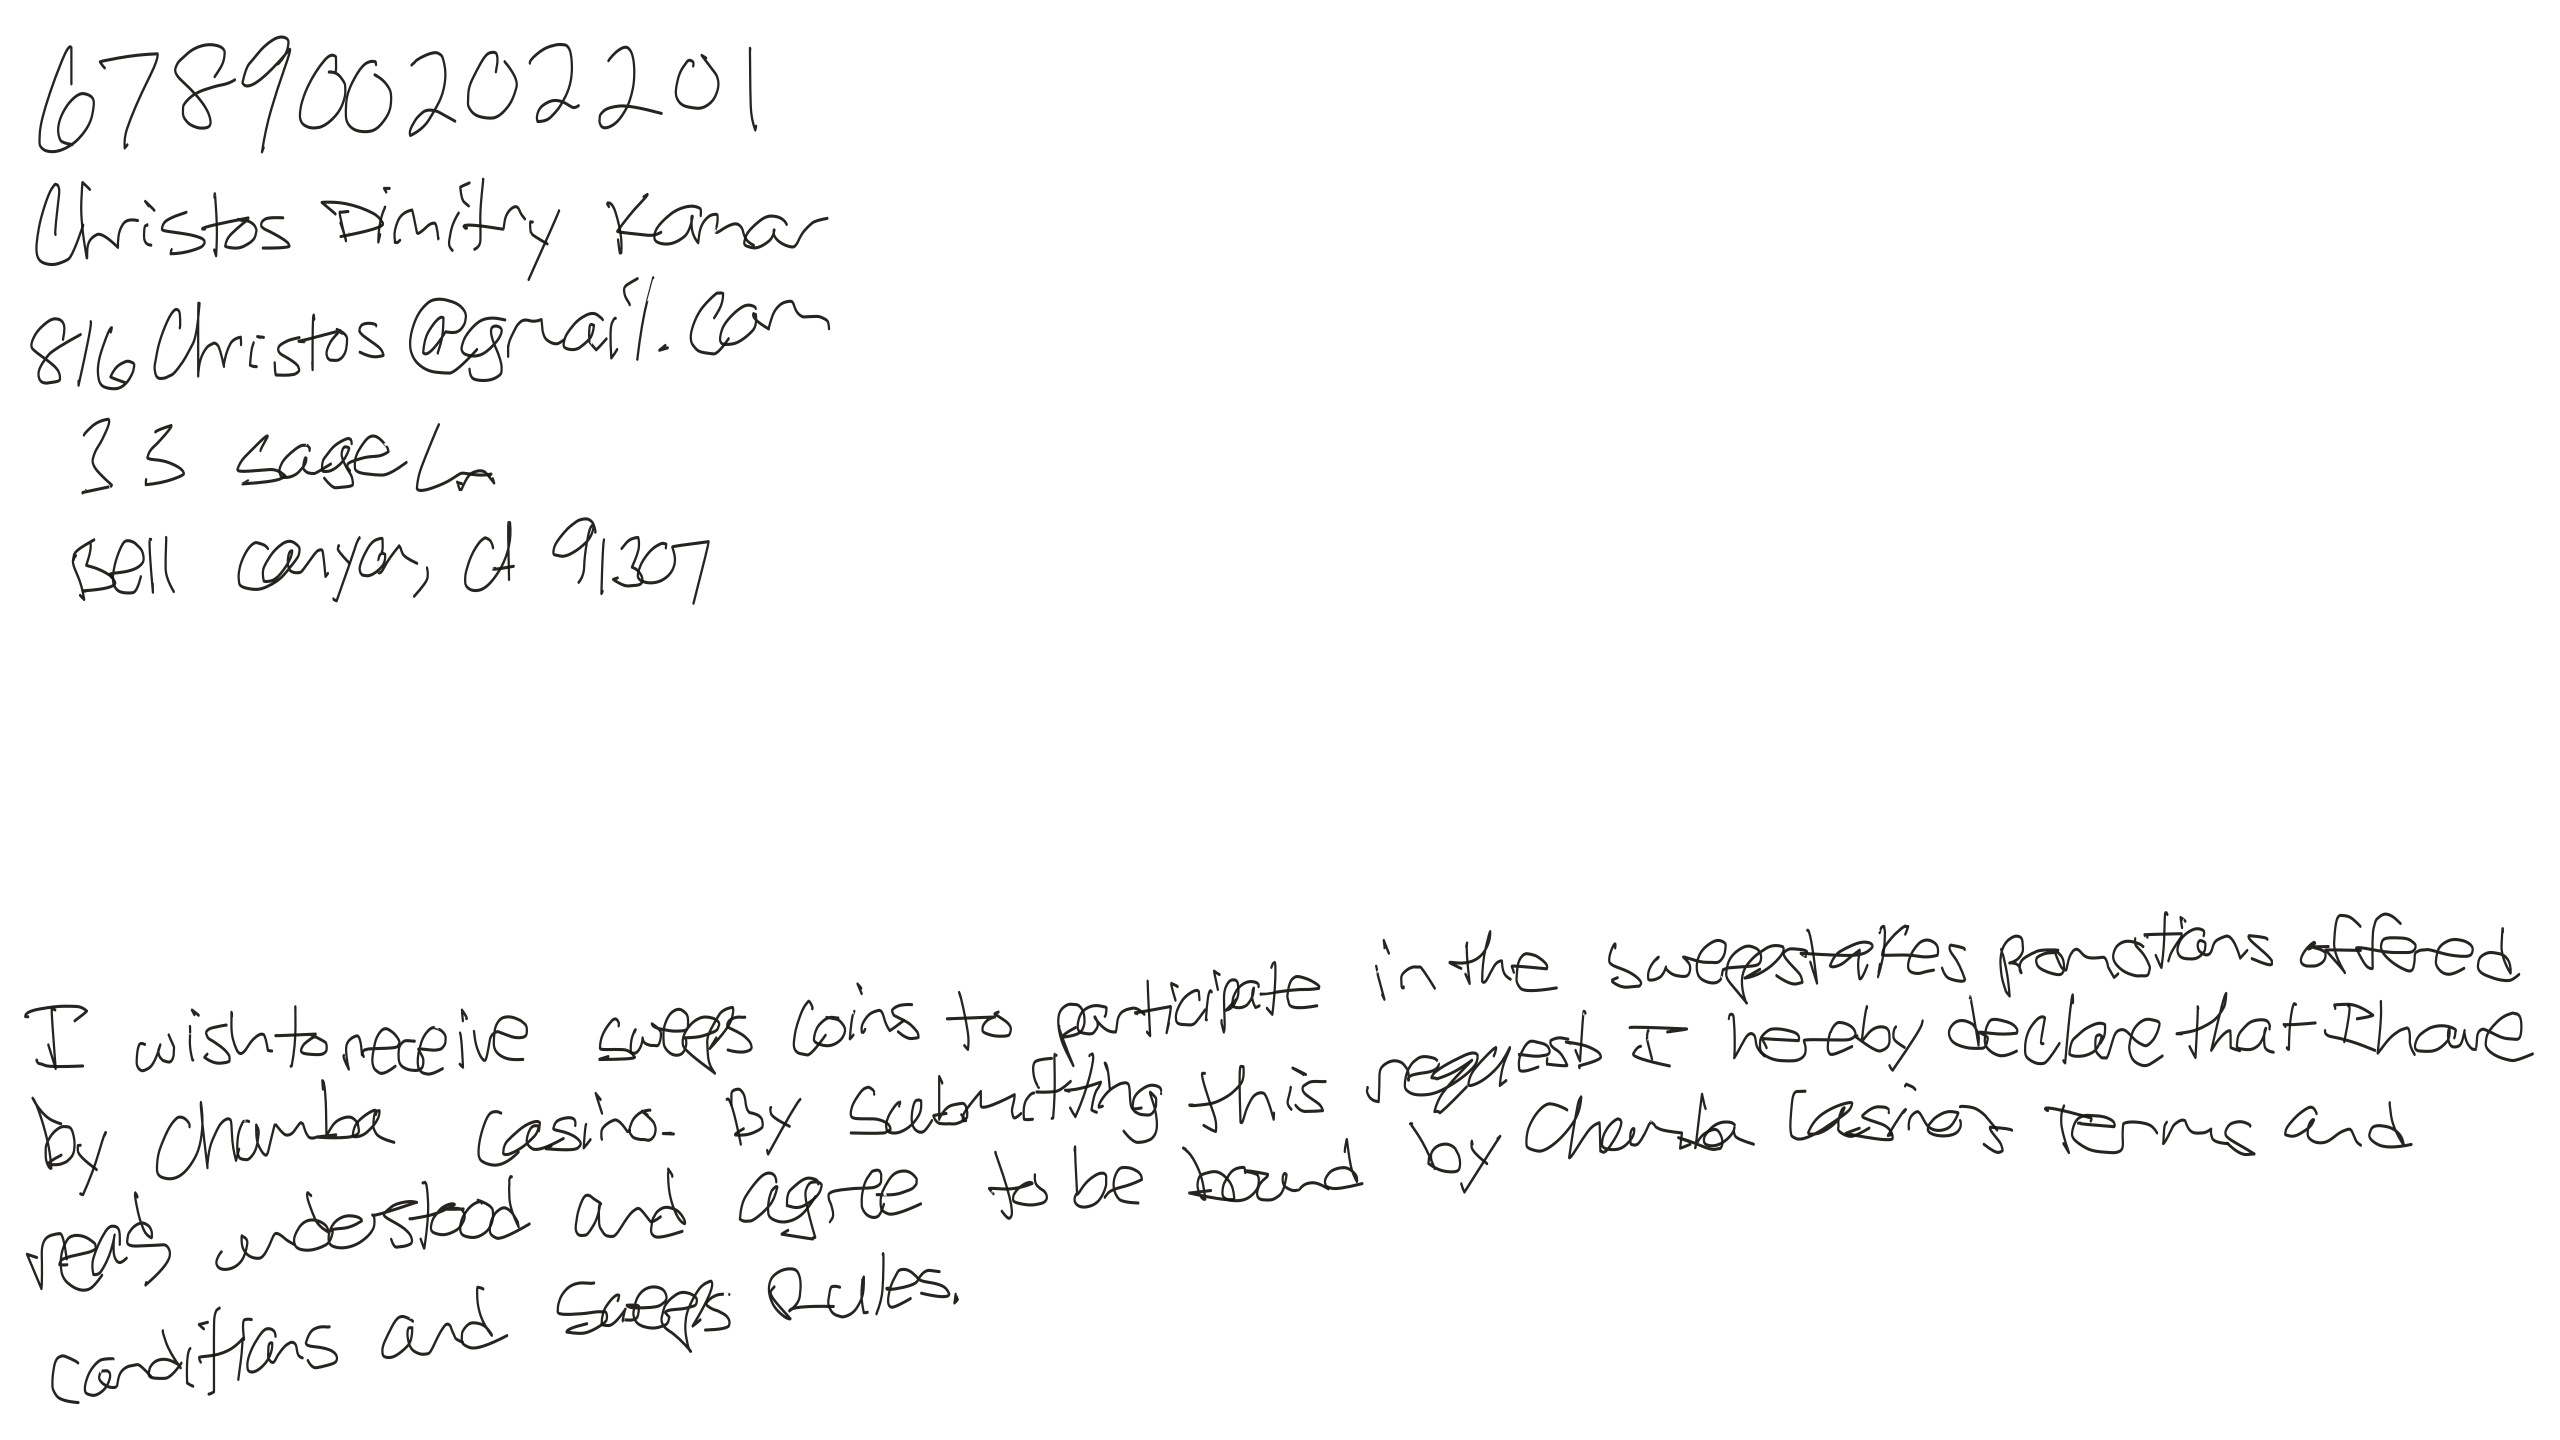 678900202201
Christos Dimitry Kamar
816Christos@gmail.com
33 sage Ln
Bell canyon, CA 91307
I wish to receive sweeps coins to participate in the sweepstakes promotions offered
by chamba casino. By submitting this request I hereby declare that I have
read understood and agree to be bound by Chamba Casino's Terms and
conditions and Sweeps Rules.